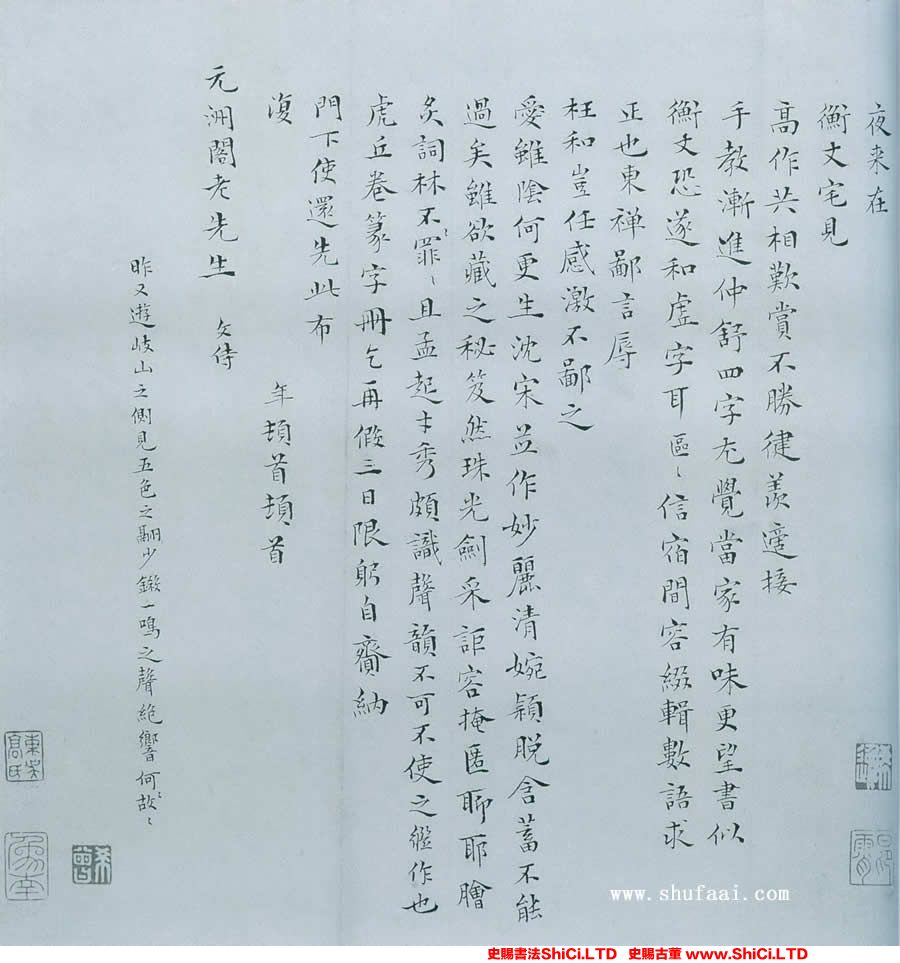 夜来在
衡丈宅見
高作共相歎賞不勝健羨適接
手教漸進仲舒四字尤覺當家有味更望書似
衡丈恐遂和虛字耳區〻信宿間容綴輯數語求
正也東禅鄙言辱
枉和豈任感激不鄙之
愛雖陰何更生沈宋並作妙麗清婉穎脱含蓄不能
過矣雖欲藏之秘笈然珠光劍采詎容掩匿聊耶膾
炙詞林不罪〻且孟起才秀頗識聲韻不可不使之繼作也
虎丘卷篆字冊乞再假三日限躬自賫納
門下使還先此布
復
年頓首頓首
元洲閣老先生 文侍
昨又遊岐山之側見五色之翮少鎩一鳴之聲絶響何故〻
陳氏
www.shufaai.com
史賜書法ShiCi.LTD 史賜古董 www.ShiCi.LTD